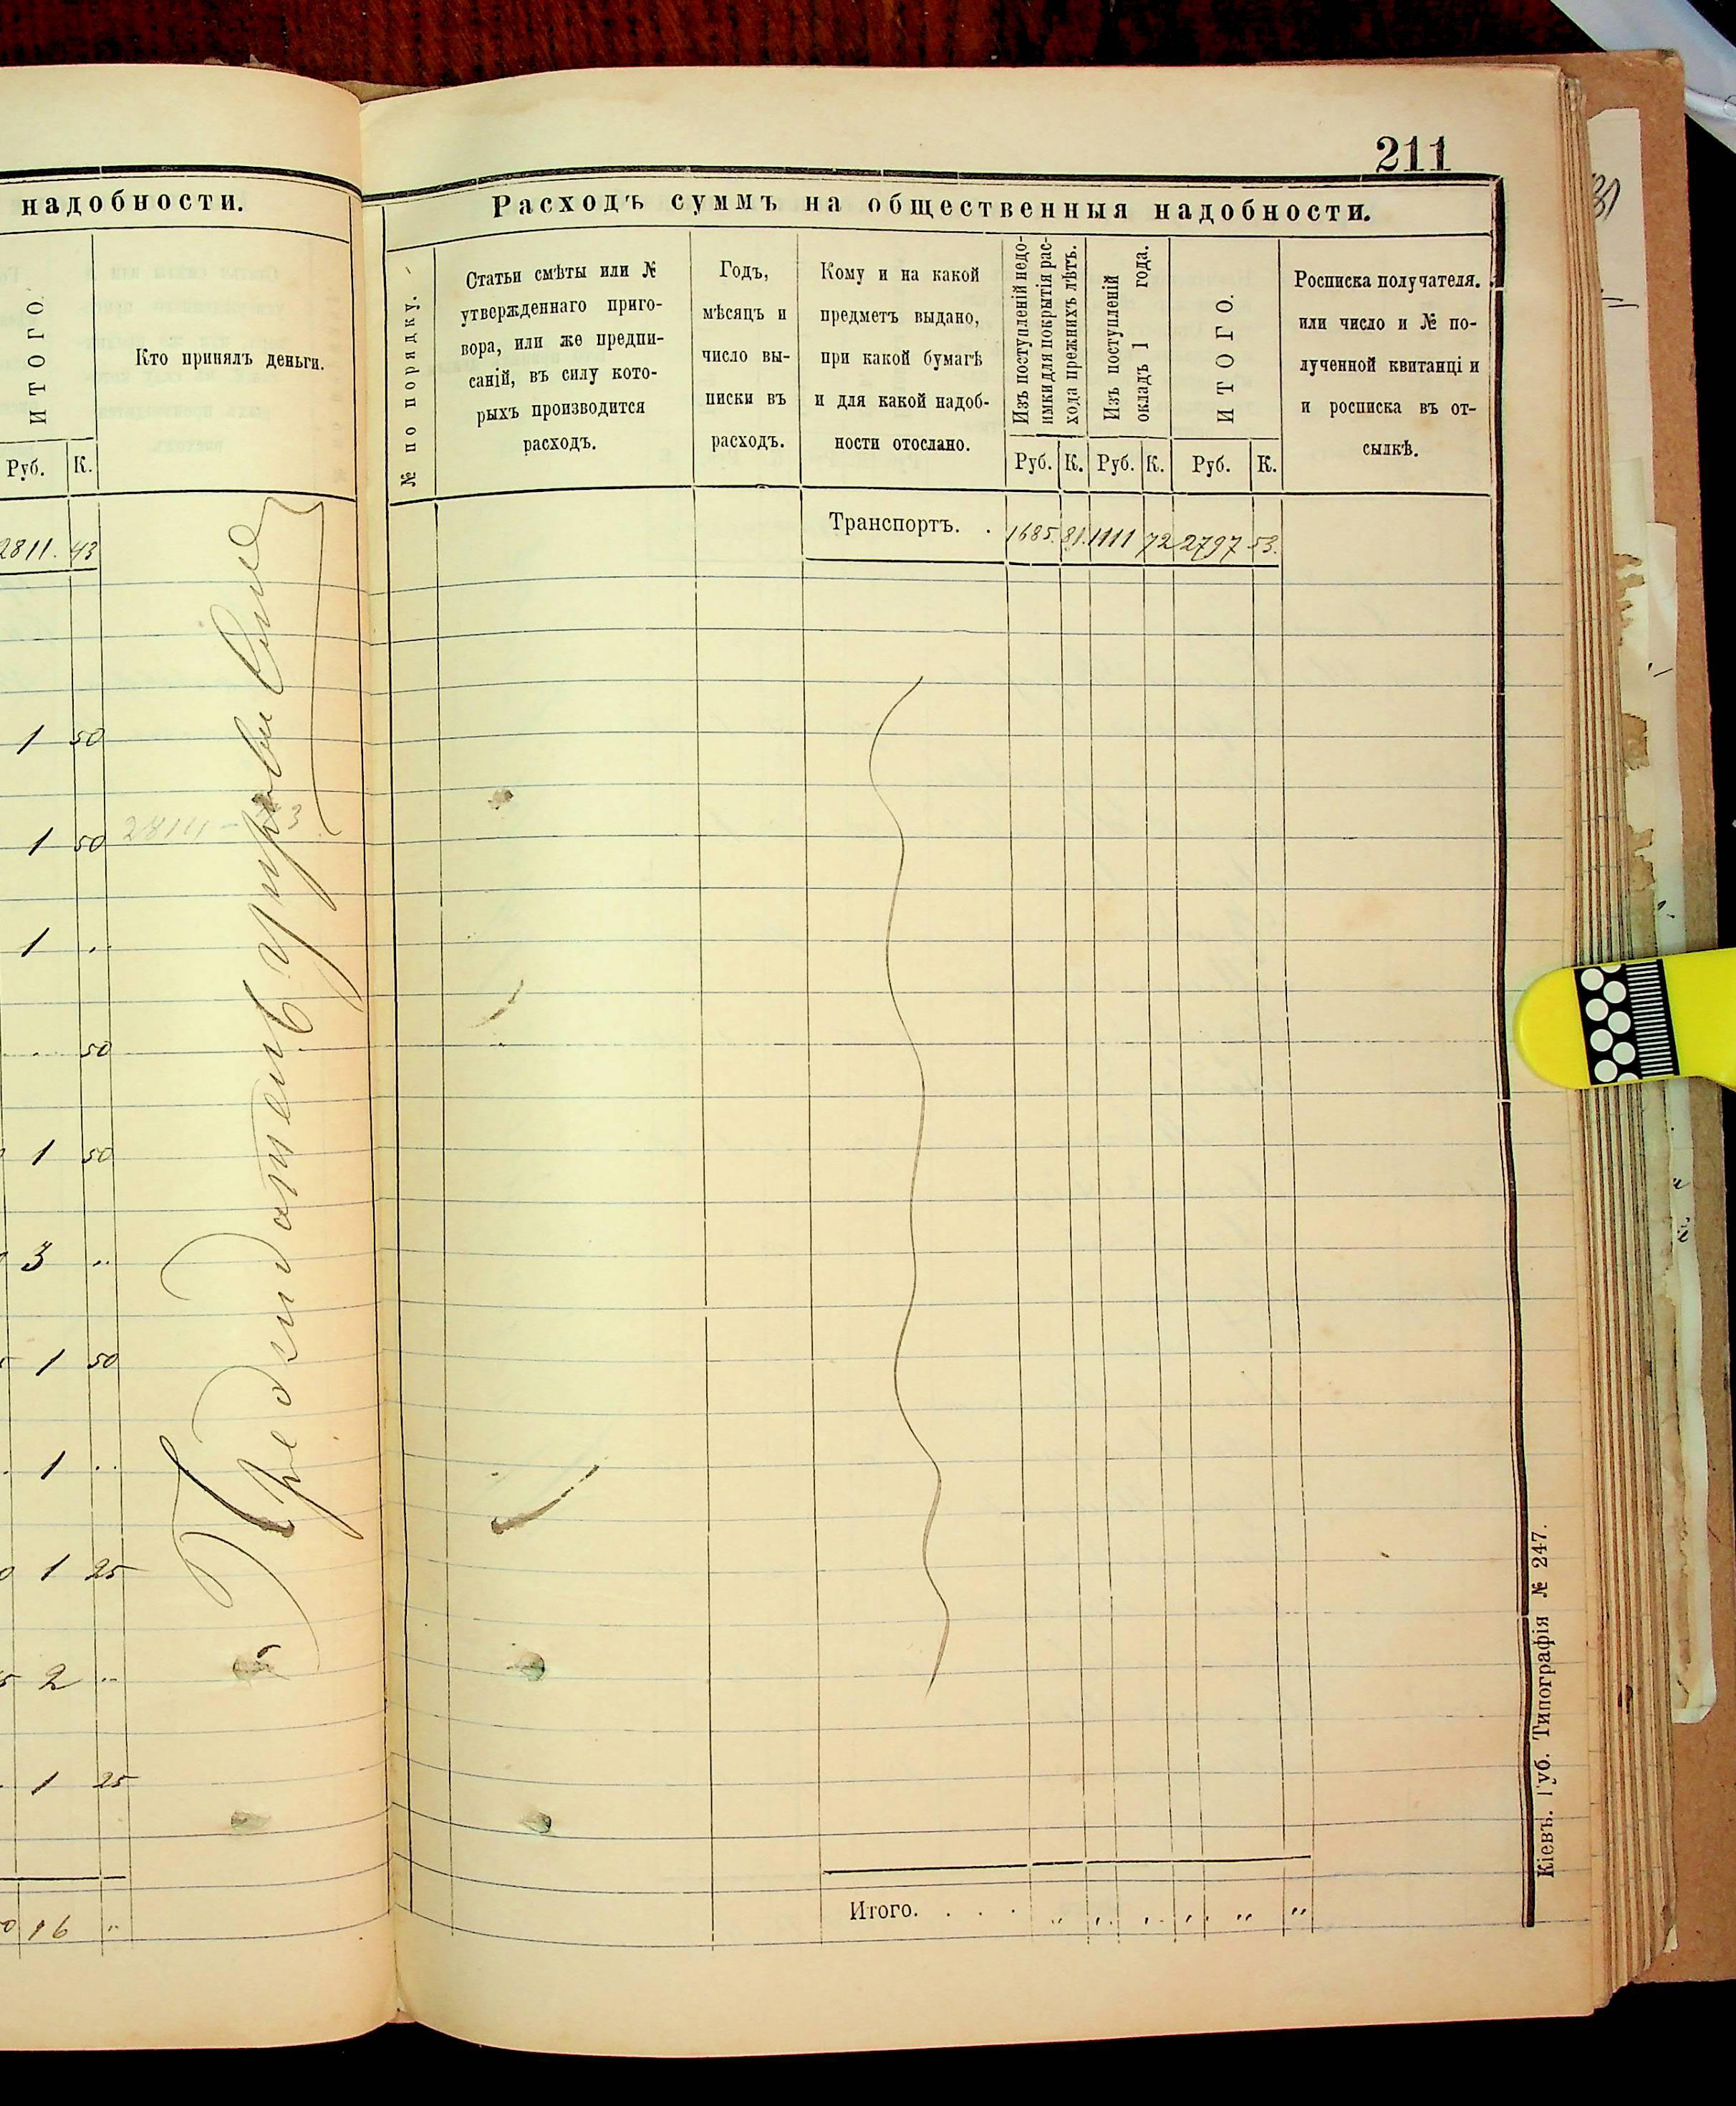 надобности.
ИТОГО.
Кто принялъ деньги.
Руб. К.
2811. 43
1 50
1 50
2811 - 43
1 ..
50
1 50
3 ..
1 50
1 ..
1 25
2 ..
1 25
16 "
211
Расходъ суммъ на общественныя надобности.
№ по порядку.
Статьи смѣты или №
утвержденнаго приго-
вора, или же предпи-
саній, въ силу кото-
рыхъ производится
расходъ.
Годъ,
мѣсяцъ и
число вы-
писки въ
расходъ.
Кому и на какой
предметъ выдано,
при какой бумагѣ
и для какой надоб-
ности отослано.
Изъ поступленій недо-
имки для покрытія рас-
хода прежнихъ лѣтъ.
Изъ поступленій
окладъ 1 года.
ИТОГО.
Росписка получателя.
или число и № по-
лученной квитанціи
и росписка въ от-
сылкѣ.
Руб. К. Руб. К. Руб. К.
Транспортъ. . 1685. 81. 1111 72 2797 53.
Итого. . . . " " " " " "
Кіевъ. Губ. Типографія № 247.